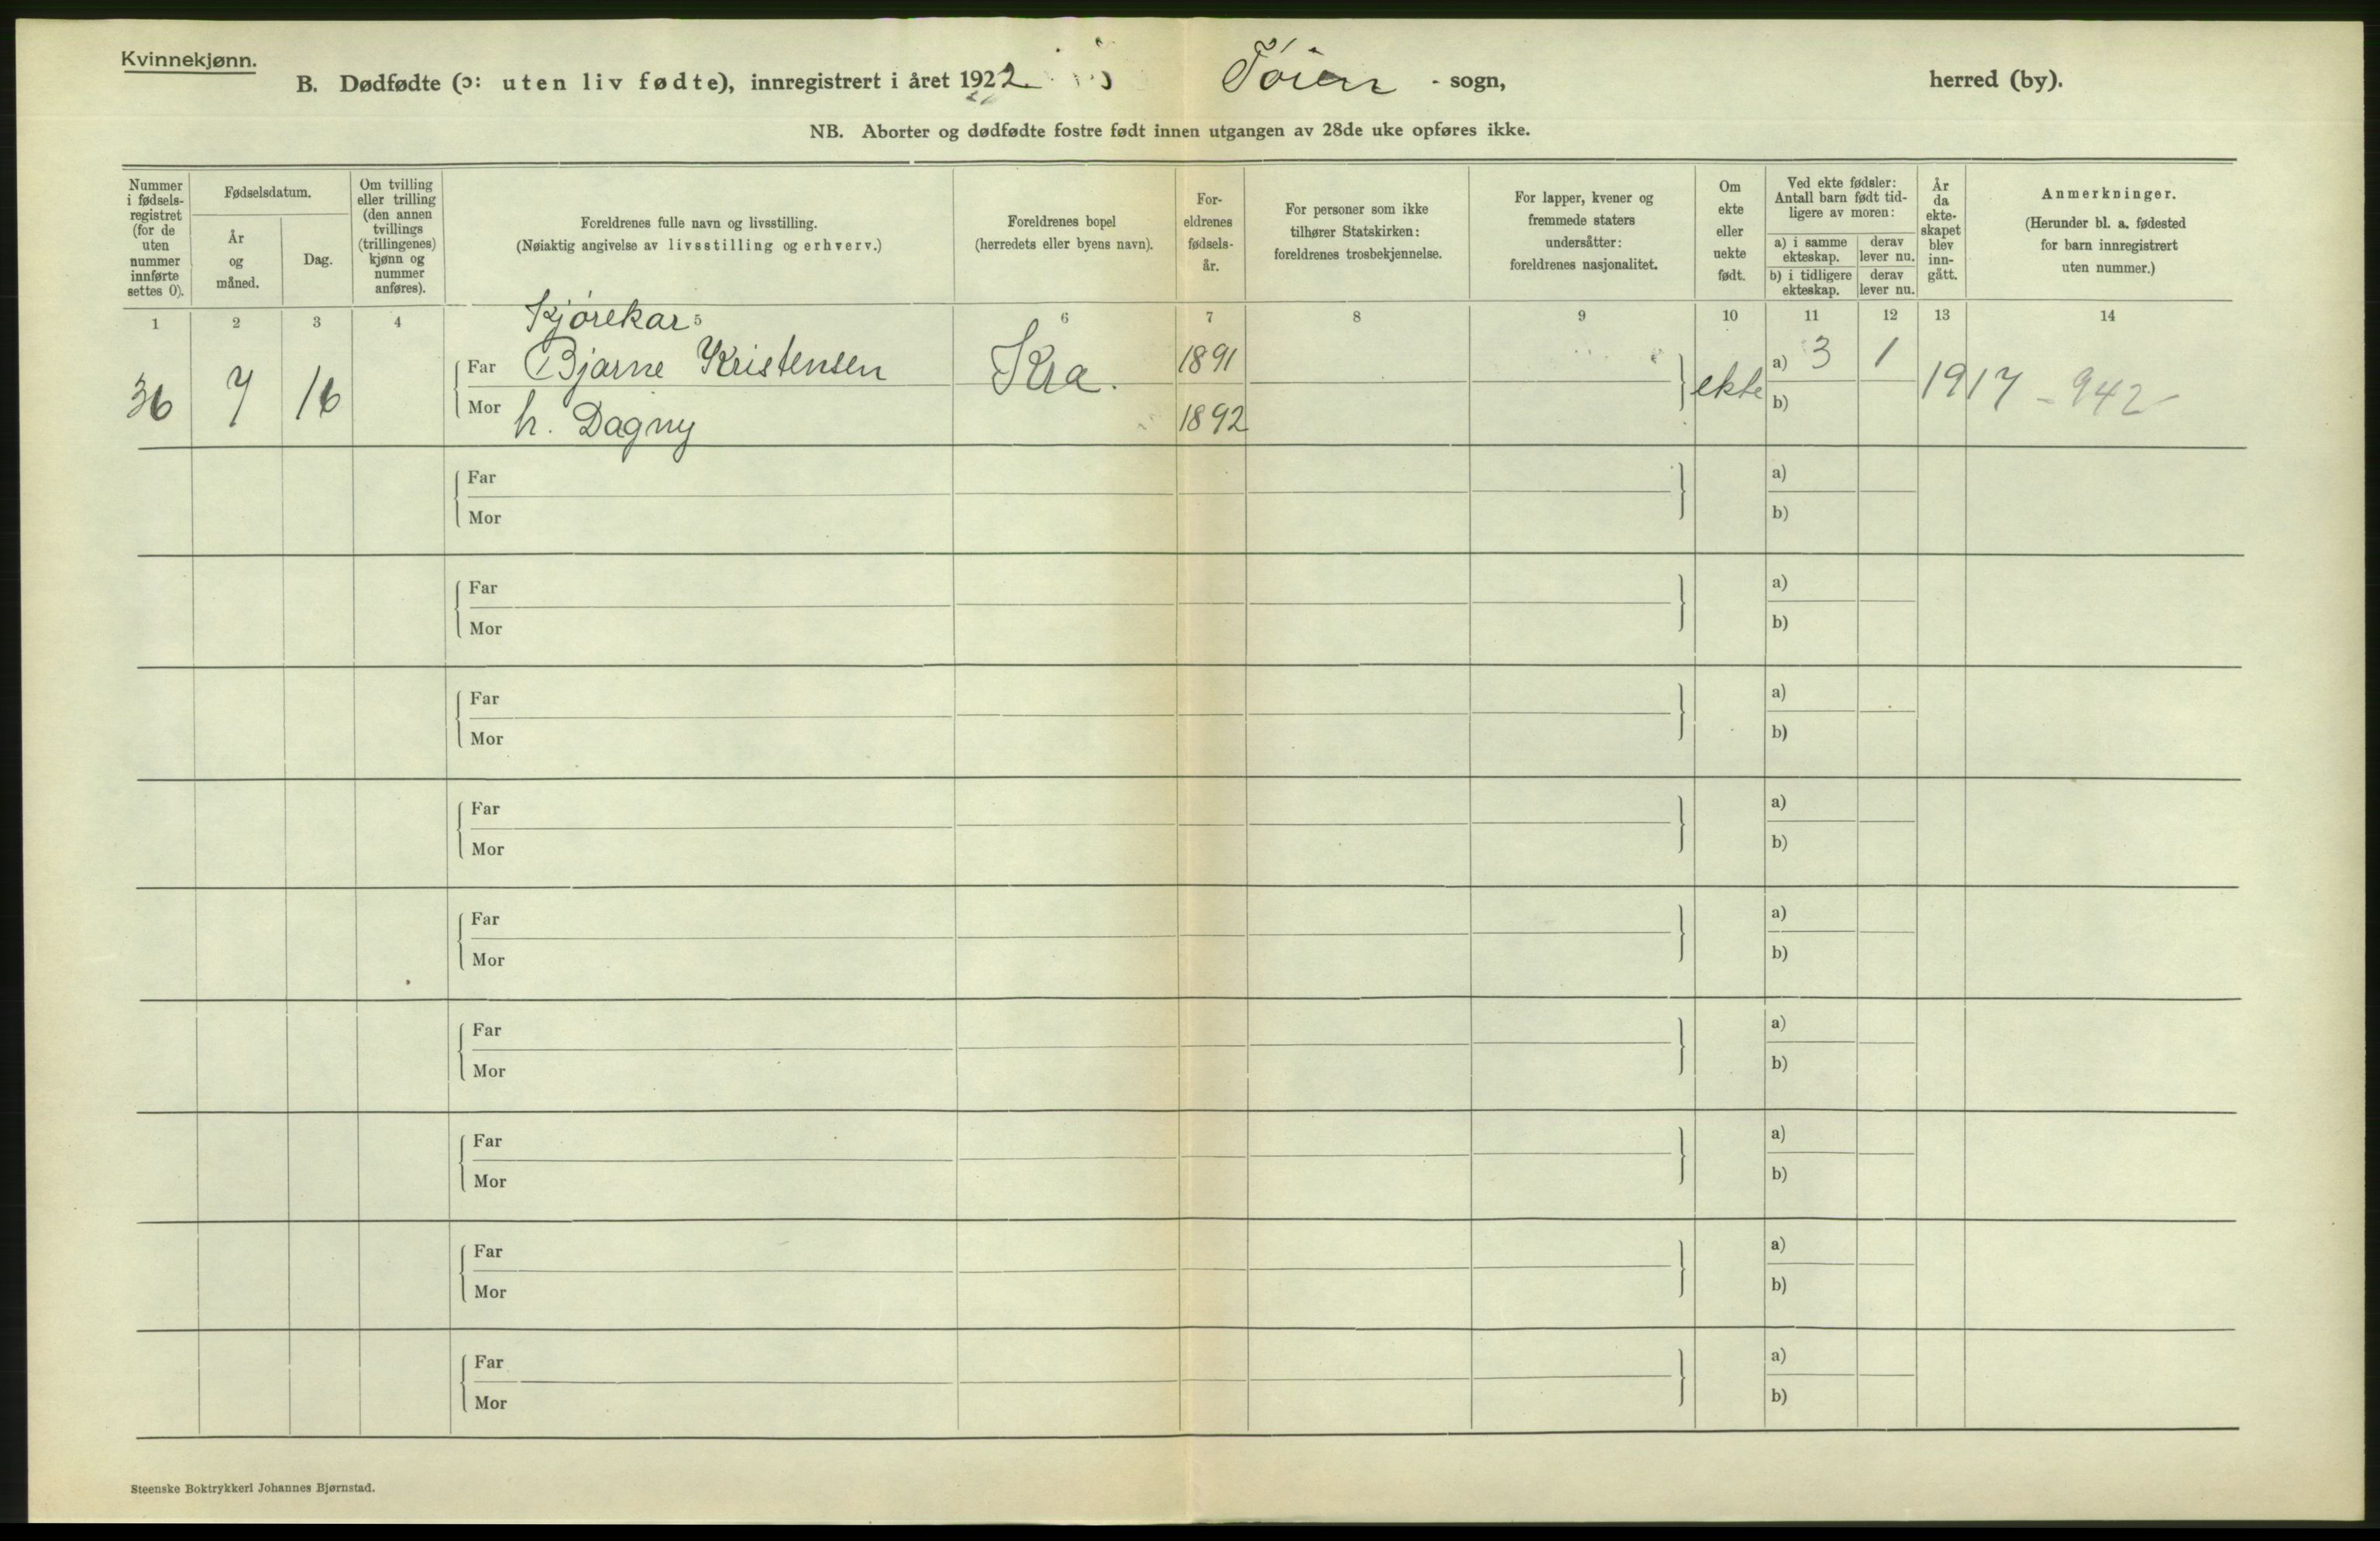 Kvinnekjønn.
B. Dødfødte (ɔ: uten liv fødte), innregistrert i året 1922 i Tøien - sogn, herred (by).
NB. Aborter og dødfødte fostre født innen utgangen av 28de uke opføres ikke.
Nummer i fødsels-registret (for de uten nummer innførte settes 0).
Fødselsdatum.
År og måned.
Dag.
Om tvilling eller trilling (den annen tvillings (trillingenes) kjønn og nummer anføres).
Foreldrenes fulle navn og livsstilling.
(Nøiaktig angivelse av livsstilling og erhverv.)
Foreldrenes bopel
(herredets eller byens navn).
For-eldrenes fødsels-år.
For personer som ikke tilhører Statskirken: foreldrenes trosbekjennelse.
For lapper, kvener og fremmede staters undersåtter: foreldrenes nasjonalitet.
Om ekte eller uekte født.
Ved ekte fødsler: Antall barn født tid-ligere av moren:
a) i samme ekteskap.
derav lever nu.
b) i tidligere ekteskap.
derav lever nu.
År da ekte-skapet blev inn-gått.
Anmerkninger.
(Herunder bl. a. fødested for barn innregistrert uten nummer.)
1 2 3 4 5 6 7 8 9 10 11 12 13 14
Kjørekar
36 7 16 Far Bjarne Kristensen Kra. 1891 ekte a) 3 1 1917 - 942 -
Mor h. Dagny 1892 b)
Far a)
Mor b)
Far a)
Mor b)
Far a)
Mor b)
Far a)
Mor b)
Far a)
Mor b)
Far a)
Mor b)
Far a)
Mor b)
Far a)
Mor b)
Far a)
Mor b)
Steenske Boktrykkeri Johannes Bjørnstad.